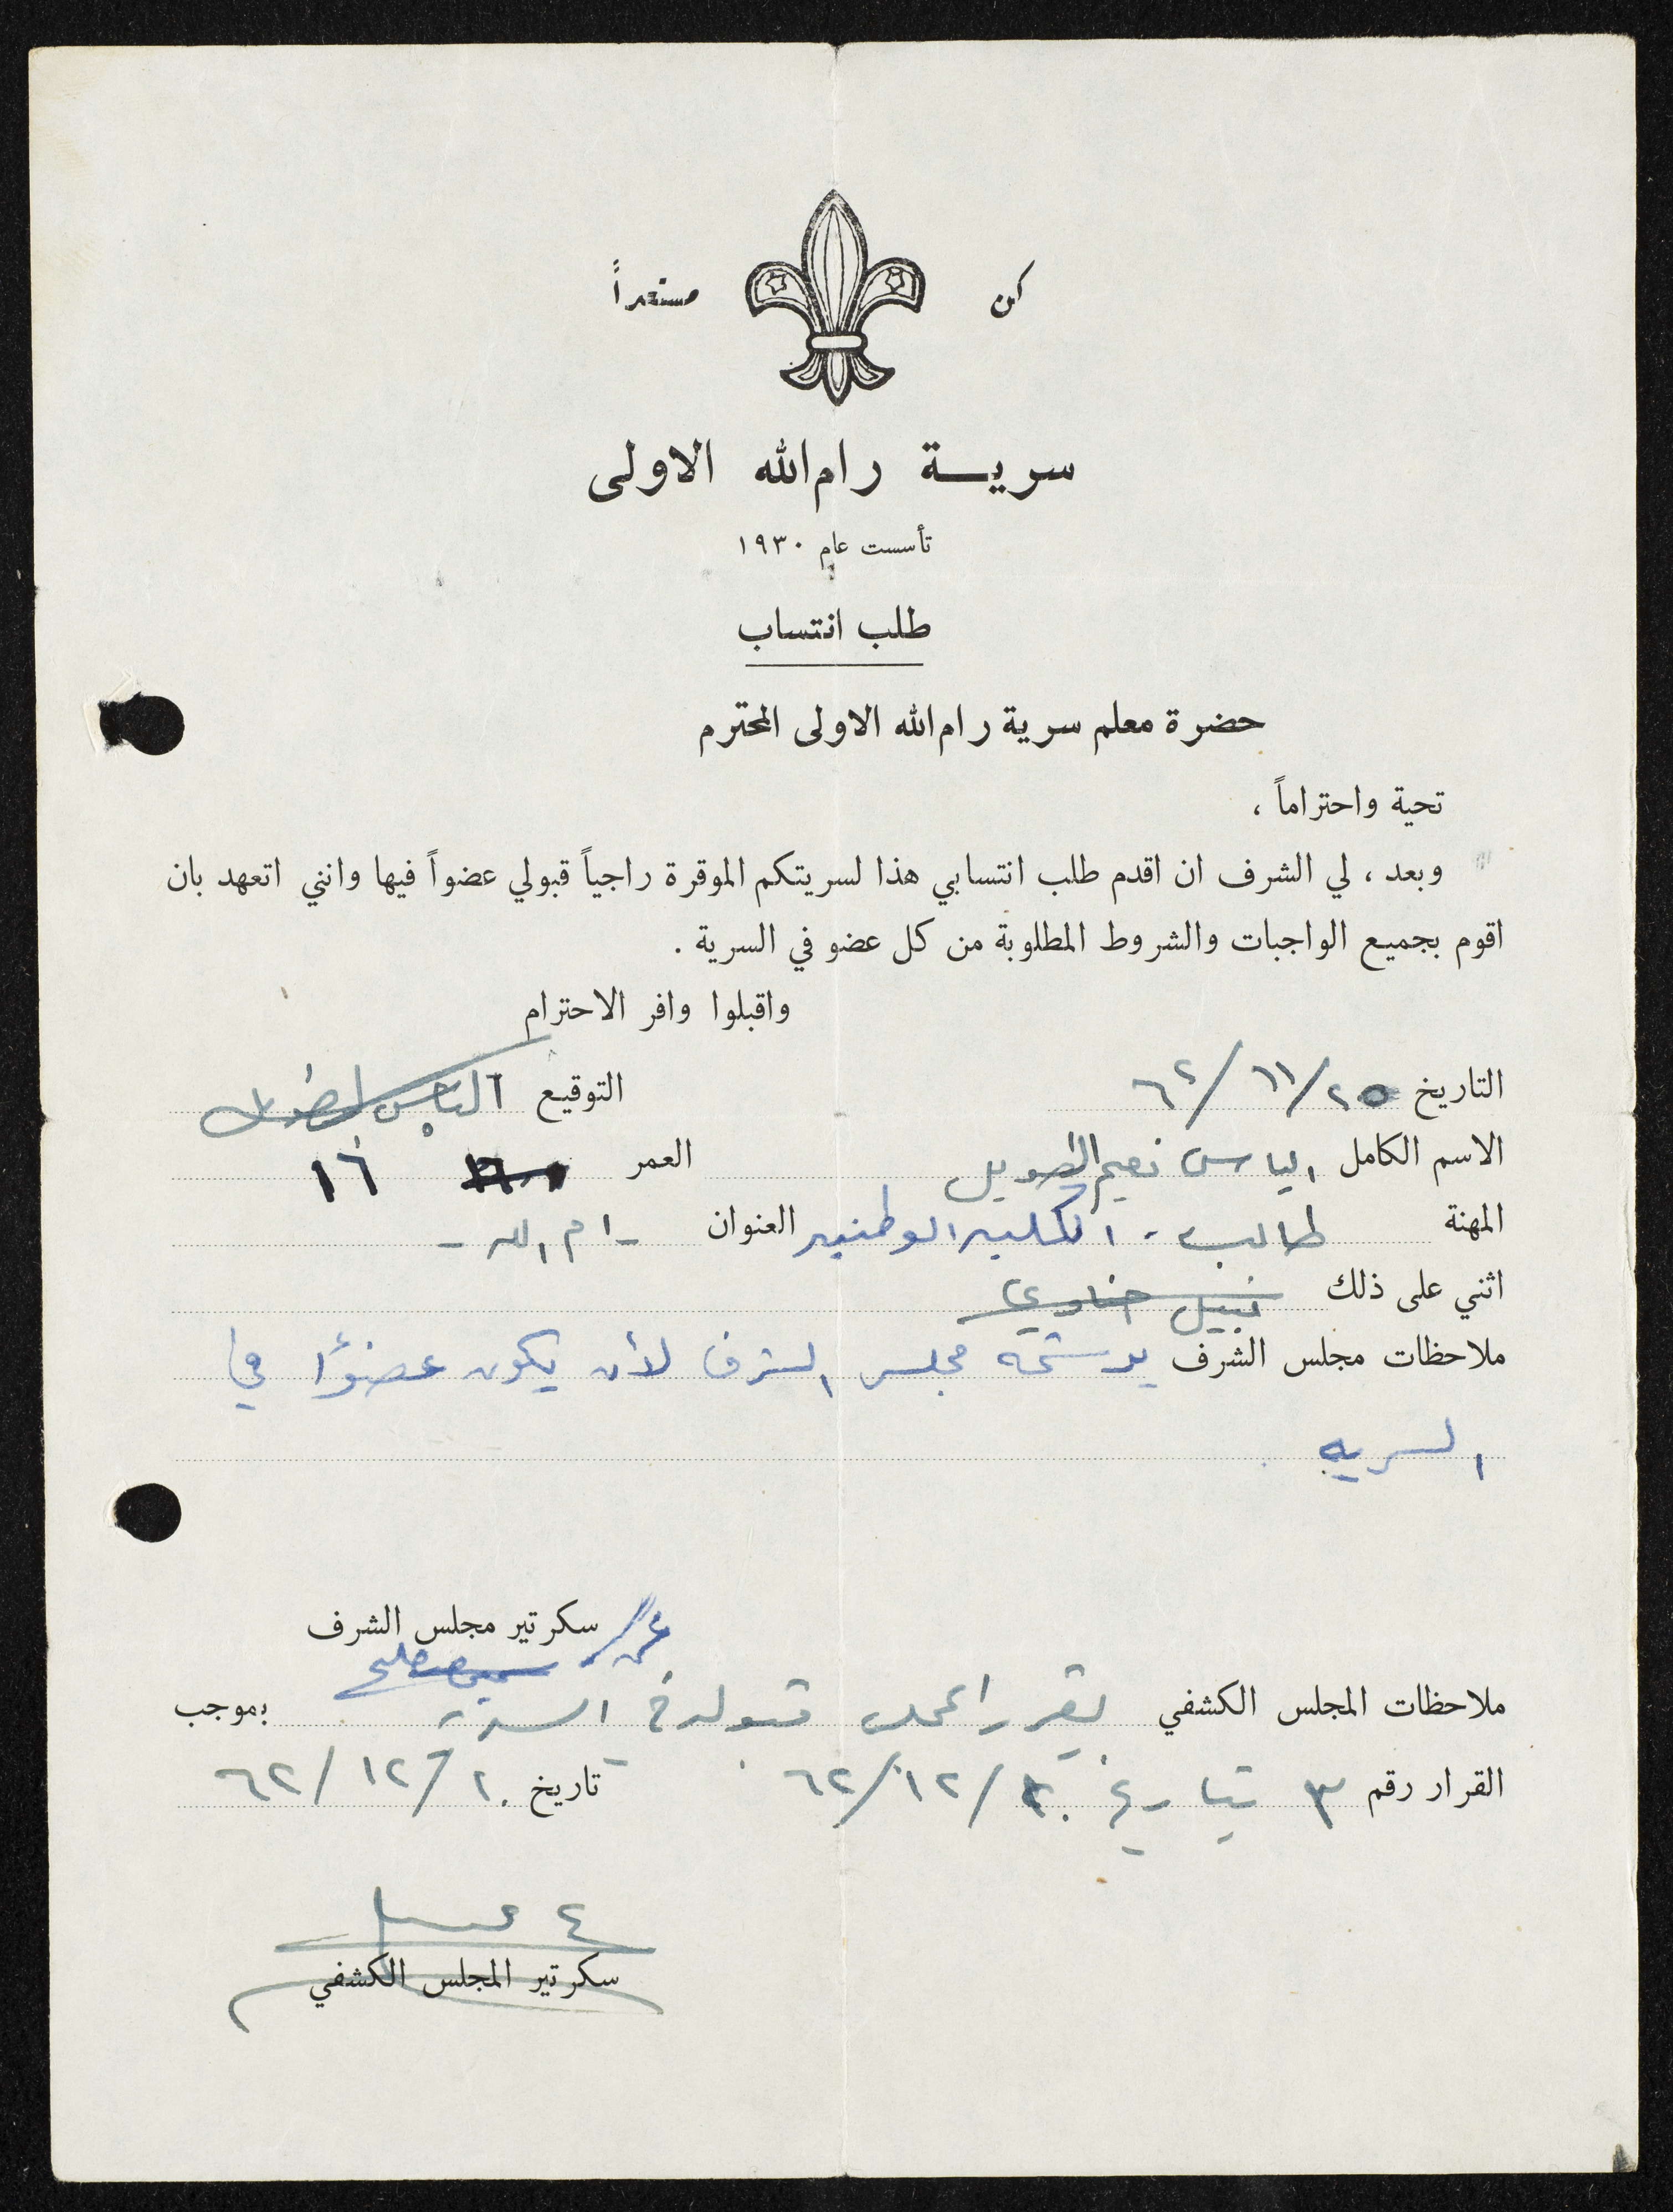 كن مستعداً
سرية رام الله الاولى
تأسست عام ١٩٣٠
طلب انتساب
حضرة معلم سرية رام الله الاولى المحترم
تحية واحتراماً ،
وبعد ، لي الشرف ان اقدم طلب انتسابي هذا لسريتكم الموقرة راجياً قبولي عضواً فيها وانني اتعهد بان
اقوم بجميع الواجبات والشروط المطلوبة من كل عضو في السرية .
واقبلوا وافر الاحترام
التاريخ ٢٥/١١/٦٢ التوقيع الياس الطويل
الاسم الكامل الياس نعيم الطويل العمر ١٦
المهنة طالب - الكلية الوطنية العنوان رام الله -
اثني على ذلك نبيل
ملاحظات مجلس الشرف يرشحه مجلس الشرف لأن يكون عضوًا في
السريه
عن/ سكرتير مجلس الشرف
ملاحظات المجلس الكشفي يقرر المجلس قبوله في السرية بموجب
القرار رقم ٣ بتاريخ ٢٠/١٢/٦٢ تاريخ ٢٠/١٢/٦٢
سكرتير المجلس الكشفي